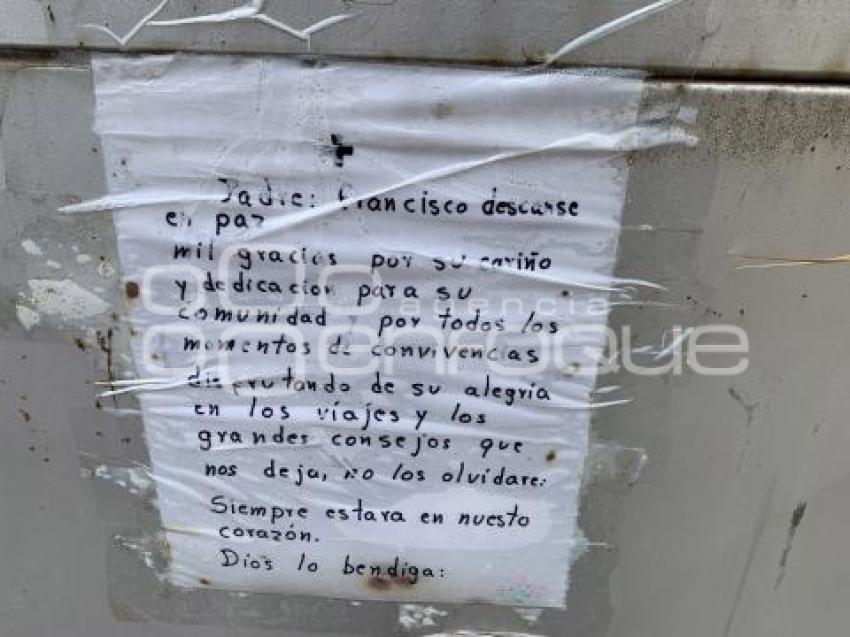 Padre: Francisco descanse
en paz
mil gracias por su cariño
y dedicacion para su
comunidad y por todos los
momentos de convivencias
disfrutando de su alegría
en los viajes y los
grandes consejos que
nos deja, no los olvidare:
Siempre estara en nuesto
corazón.
Dios lo bendiga:
agencia
enfoque